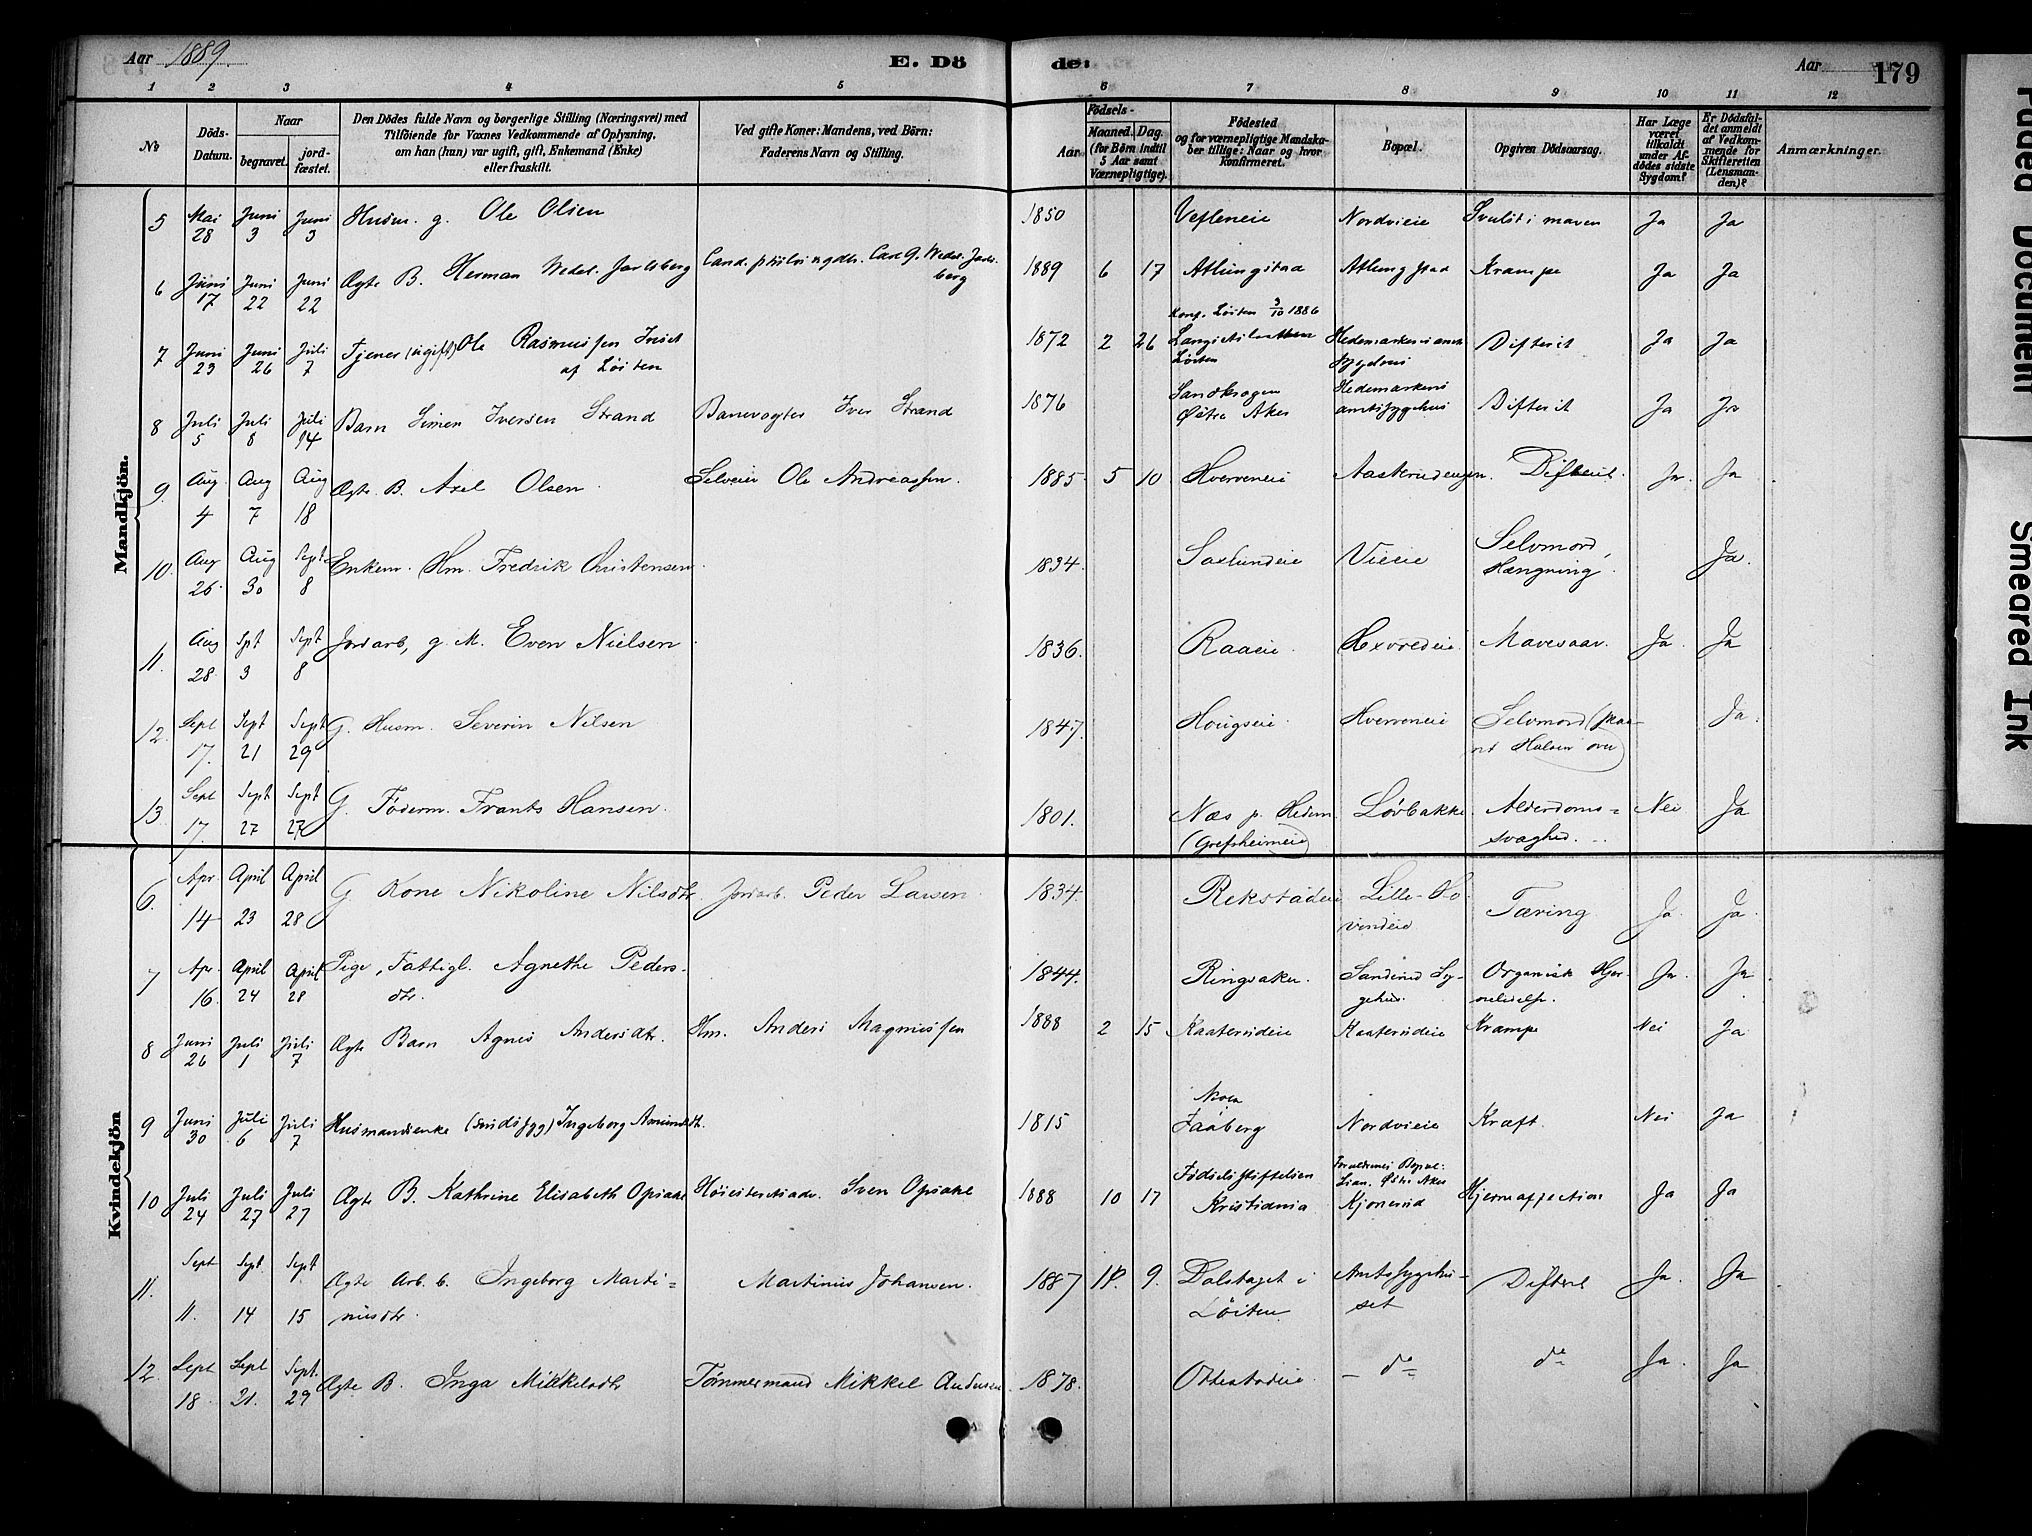 Aar 1889.
E. Dö
de:
Aar 179
1 2 3 4 5 6 7 8 9 10 11 12
No
Döds-Datum.
Naar
begravet.
jord-fæstet.
Den Dödes fulde Navn og borgerlige Stilling (Næringsvei) med
Tilföiende for Voxnes Vedkommende af Oplysning,
om han (hun) var ugift, gift, Enkemand (Enke)
eller fraskilt.
Ved gifte Koner: Mandens, ved Börn:
Faderens Navn og Stilling.
Födsels-
Aar
Maaned. Dag.
(for Börn indtil
5 Aar samt
Værnepligtige).
Födested
og for værnepligtige Mandska-
ber tillige: Naar og hvor
Konfirmeret.
Bopæl.
Opgiven Dödsaarsag.
Har Læge
været
tilkaldt
under Af-
dödes sidste
Sygdom?
Er Dödsfal-
det anmeldt
af Vedkom-
mende for
Skifteretten
(Lensman-
den)?
Anmærkninger.
Mandkjön.
5 Mai 28 Juni 3 Juni 3 Husm. g. Ole Olsen 1850 Nordvieie Svulst i maven Ja Ja
6 Juni 17 Juni 22 Juni 22 Ægte B. Herman Wedel. Jarlsberg Carl G. Wedel. Jarls-
berg 1889 6 17 Atlungstad Atlungstad Krampe Ja Ja
Konf. Løiten 3/10 1886
7 Juni 23 Juni 26 Juli 7 Tjener (ugift) Ole Rasmussen
af Løiten 1872 2 26 Løiten Hedemarkens amts
sygehus Difterit Ja Ja
8 Juli 5 Juli 8 Juli 14 Barn Simen Iversen Strand Banevogter Iver Strand 1876 Østre Aker Hedemarkens
amtssygehus Difterit Ja Ja
9. Aug. 4 Aug 7 Aug 18 Ægte B. Axel Olsen Selveier Ole Andreassen. 1885 5 10 Hverveneie Aasterudengen. Difterit. Ja. Ja
10. Aug 26 Aug 30 Sept 8 Enkem. Hm. Fredrik Christensen. 1834. Saxlundeie Vieie Selvmord,
Hængning. Ja.
11. Aug 28 Spt 3 Sept 8 Jordarb, g. M. Even Nielsen 1836. Raaeie. Mavesaar. Ja. Ja
12. Sept 17. Sept 21 Sept 29 G. Husm. Severin Nilsen 1847. Hougseie Hverveneie Selvmord (skaa-
ret Halsen over) Ja.
13. Sept 17. Sept 27 Sept 27 G. Føderm. Frants Hansen. 1801. Næs p. Hedem.
(Grefsheimeie) Løvbakke. Alderdoms=
svaghed. Nei Ja
Kvindekjön
6. Apr. 14 April 23 April 28 G Kone Nikoline Nilsdtr. Jordarb. Peder Larsen 1834. Rekstadeie Lille-Ho-
vindeie Tæring Ja. Ja.
7 Apr. 16. April 24 April 28 Pige, Fattigl. Agnethe Peders-
dtr. 1844. Ringsaker. Sanderud Sy-
gehus. Organisk Hjer-
telidelse. Ja. Ja
8 Juni 26 Juli 1 Juli 7 Ægte Barn Agnes Andersdtr. Hm. Anders Magnussen 1888 2 15 Kaaterudeie Kaaterudeie Krampe Nei Ja
9 Juni 30 Juli 6 Juli 7 Husmandsenke (sindssyg) Ingeborg Amundsdtr. 1815 Faaberg Nordvieie Kræft. Nei Ja
10 Juli 24 Juli 27 Juli 27 Ægte B. Kathrine Elisabeth Opsahl Høiesteretsadv. Sven Opsahl 1888 10 17 Fødselsstiftelsen
Kristiania Forældrenes Bopæl:
Lian, Østre Aker
Kjonerud Hjerneaffection Ja Ja
11. Sept 11. Sept. 14 Sept 15 Ægte Arb. b. Ingeborg Marti=
nusdtr. Martinus Johansen. 1887 9. Løiten Amtssygehu-
set Difterit Ja. Ja
12. Sept 18 Sept 21. Sept. 29 Ægte B. Inga Mikkelsdtr Tømmermand Mikkel Andersen 1878. Ottestadeie. - do do Ja. Ja
Faded Document
Smeared Ink